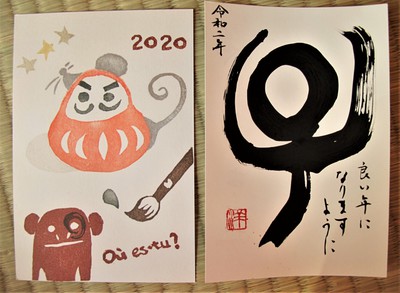 2020
Où es-tu?
令和二年
子
良い年に
なります
ように